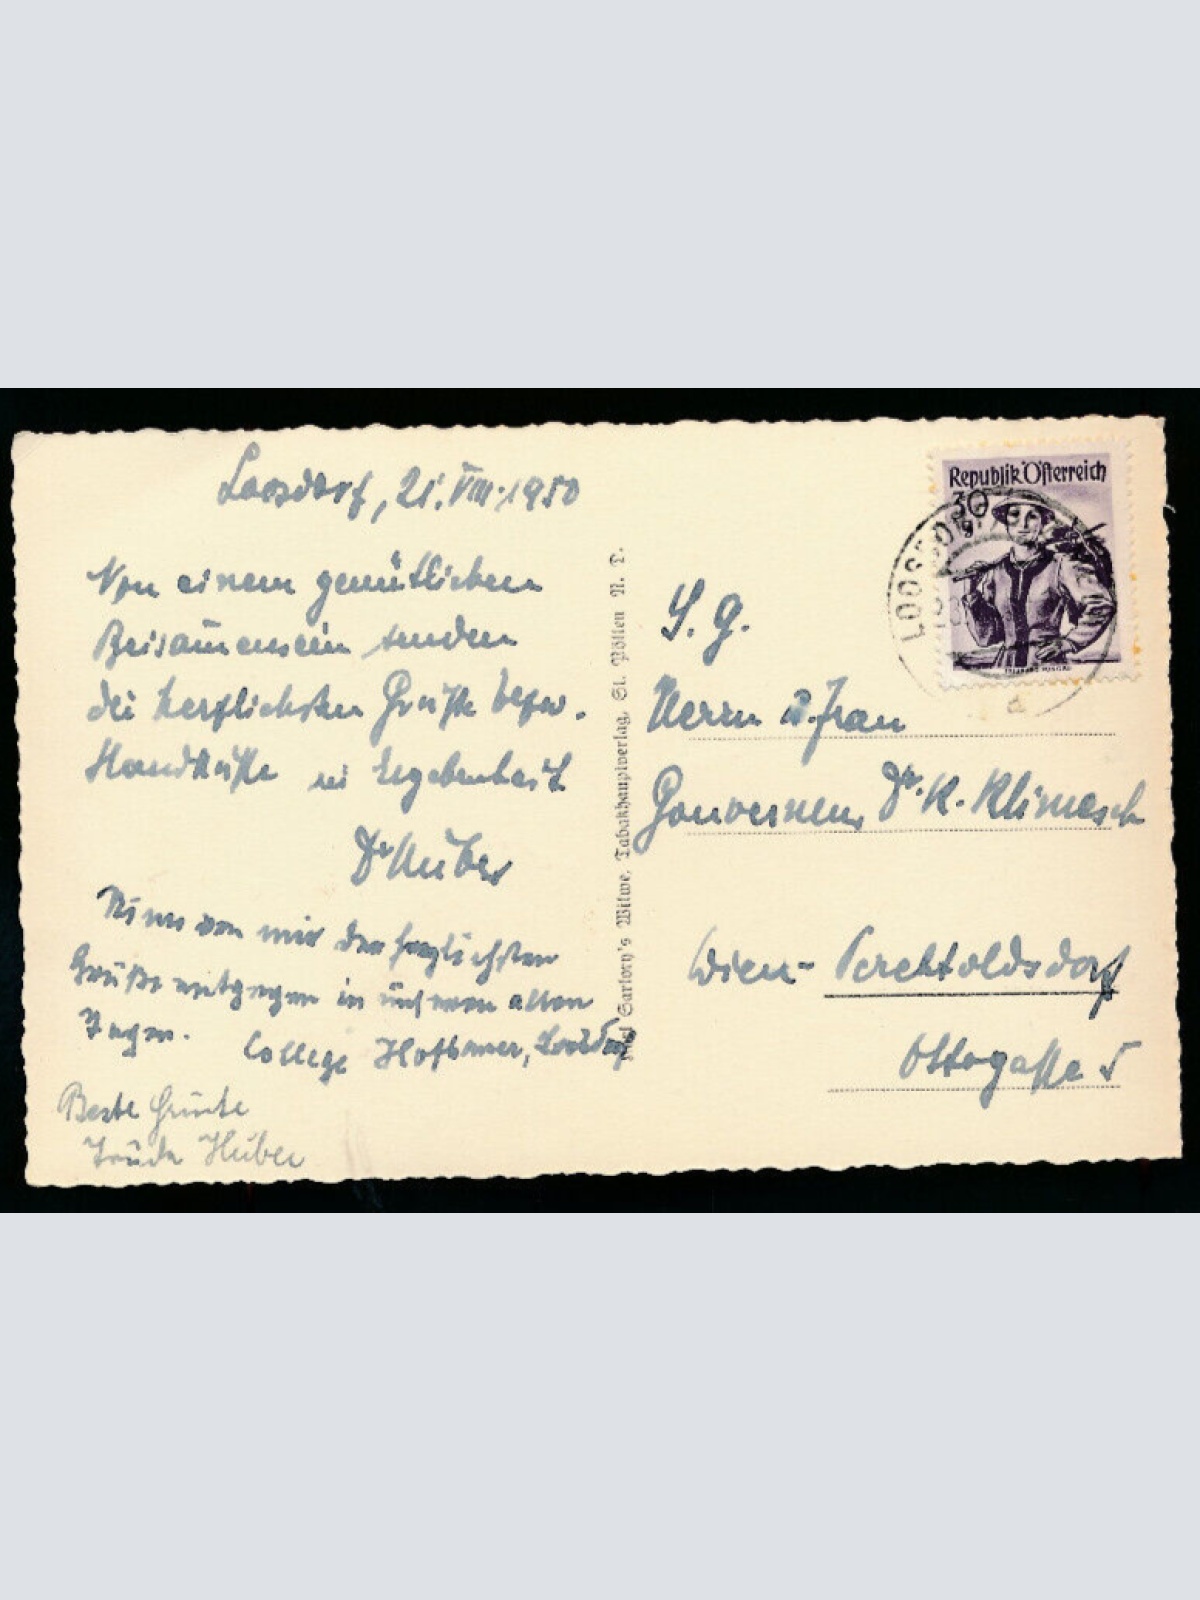 Loosdorf, 21. VIII. 1950
Von einem gemütlichen
Beisammensein senden
die herzlichsten Grüße bezw.
Handküsse in Ergebenheit
Dr Huber
Nimm von mir den herzlichsten
Grüße entgegen in unseren alten
Tagen.
College Hofbauer, Loosdorf
Beste Grüße
Trude Huber
Sartory's Witwe, Tabakhauptverlag, St. Pölten N. D.
Republik Österreich
30
LOOSDORF
a
S. g.
Herrn u. Frau
Gouverneur Dr. K. Klimesch
Wien - Perchtoldsdorf
Ottogasse 5